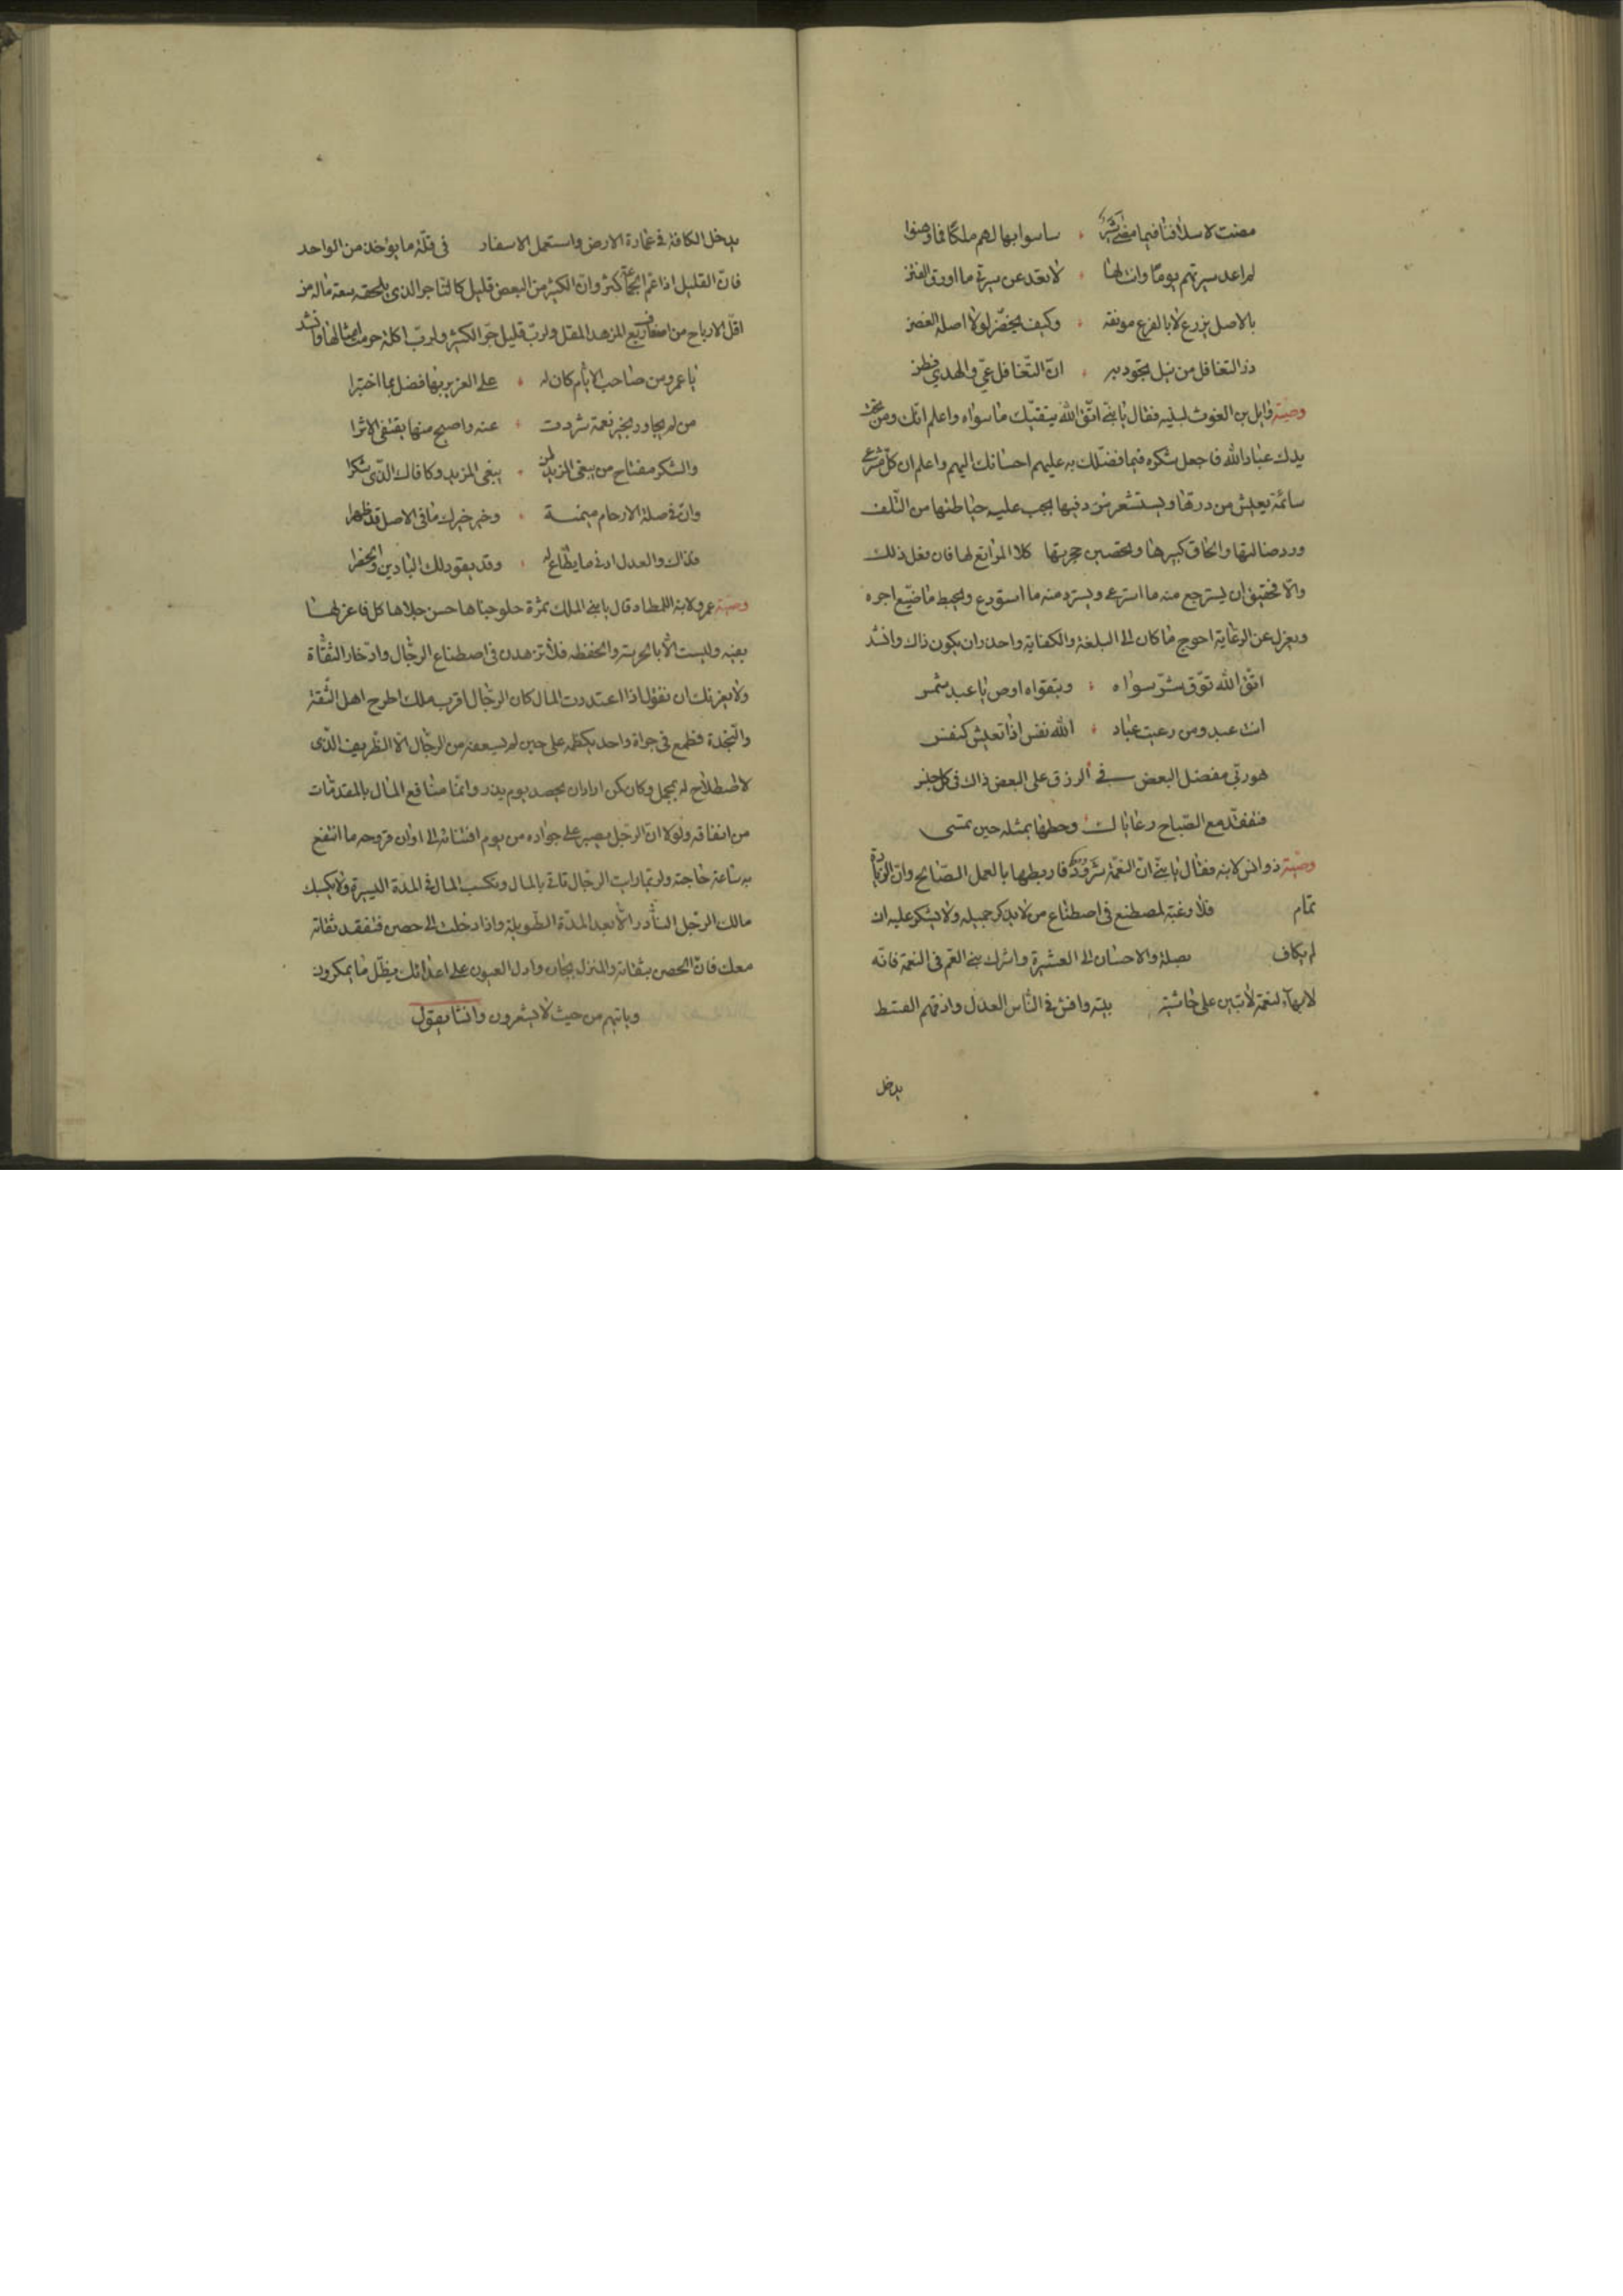 مضت لاسلافنا فيما مضى سير ساسوا بها لهم ملكا فما وهنوا
لم اعد سيرتهم يوما وان لها لا تعد عن سيرتي ما اورق الفنن
بالاصل يزرع لا بالفرع مونقه وكيف يخضر لولا اصله الغصن
ان التغافل عي والهدى فطن
وصية وايل بن الغوث لبنيه فقال يا بني اتق الله يتقيك ما سواه واعلم انك ومن تحت
يدك عباد الله فاجعل شكره فيما فضلك به عليهم احسانك اليهم واعلم ان كل مسترعى
سائمة يعيش من درها ويستشعر من دفيها يجب عليه حياطتها من التلف
ورد ضالتها والحاق كسيرها وتحصين حجرتها كلا المراتع لها فان فعل ذلك
والا فحقيق ان يسترجع منه ما استرعى ويسترد منه ما استودع ويحبط ما ضيع اجره
ويعزل عن الرعاية احوج ما كان الى البلغة والكفاية واحذر ان يكون ذاك وانشد
اتق الله توق شر سواه وبتقواه اوص يا عبد شمس
انت عبد ومن رعيت عباد الله نفس اذا تعيش كنفس
هو ربي مفضل البعض في الرزق على البعض ذاك في كل جنس
فتفقد مع الصباح رعاياك وحطها بمثله حين تمسى
وصية ذو انس لابنه فقال يا بني ان النعمة شرود فاربطها بالعمل الصالح وان الزيادة
تمام فلا رغبة لمصطنع في اصطناع من لا يذكر جميله ولا يشكر عليه ان
لم يكاف بصلة والاحسان الى العشيرة واشرك بني العم في النعمة فانه
لا بهاء لنعمة لا تبين على حاشية بيته وافش في الناس العدل واذقهم القسط
يدخل
يدخل الكافة في عمارة الارض واستعمل الاسفار في قلة ما يؤخذ من الواحد
فان القليل اذا عم الجماعة كثر وان الكثير من البعض قليل كالتاجر الذي يلحقه سعة ماله من
اقل الارباح من اضعاف ربع المزهد المقل ولرب قليل جر الكثير ولرب اكلة حرمت امثالها وانشد
يا عمرو من صاحب الايام كان له على العزيز بها فضل بما اختبرا
من لم يجاور بخير نعمة شردت عنه واصبح منها يقتفى الاثرا
والشكر مفتاح من يبغى المزيد لمن يبغى المزيد وكافاك الذي شكرا
وان في صلة الارحام ميمنة وخير خبرك ما في الاصل قد ظهرا
فذاك والعدل ادنى ما يطاع به وقد يقود لك البادين والحضرا
وصية عمرو لابنه الملطاط قال يا بني الملك ثمرة حلو جناها حسن جلاها كل فاغر لها
بغيه وليست الا بالحربة والحفظه فلا تزهدن في اصطناع الرجال وادخار الثقاة
ولا يغرنك ان تقول اذا اعتددت المال كان الرجال اقرب ملك اطرح اهل الثقة
والنجدة فطمع في جراة واحد يكظمه على حين لم يسعفه من الرجال الا الظريف الذي
لاصطلاح لم يجمل وكان كمن اراد ان يحصد يوم يبذر وانما منافع المال بالمقدمات
من انفاقه ولولا ان الرجل يصبر على جواده من يوم افتنائه الى اوان قروحه ما انتفع
به ساعة حاجته ولو تبارات الرجال تاتي بالمال وتكسب المال في المدة اليسيرة ولا يكسبك
مالك الرجل النادر الا بعد المدة الطويلة واذا دخلت الى حصن فتفقد ثقاته
معك فان الحصن بثقاته والمنزل بجان وادل العيون على اعدائك يظل ما يمكرون
وياتيهم من حيث لا يشعرون وانشا يقول